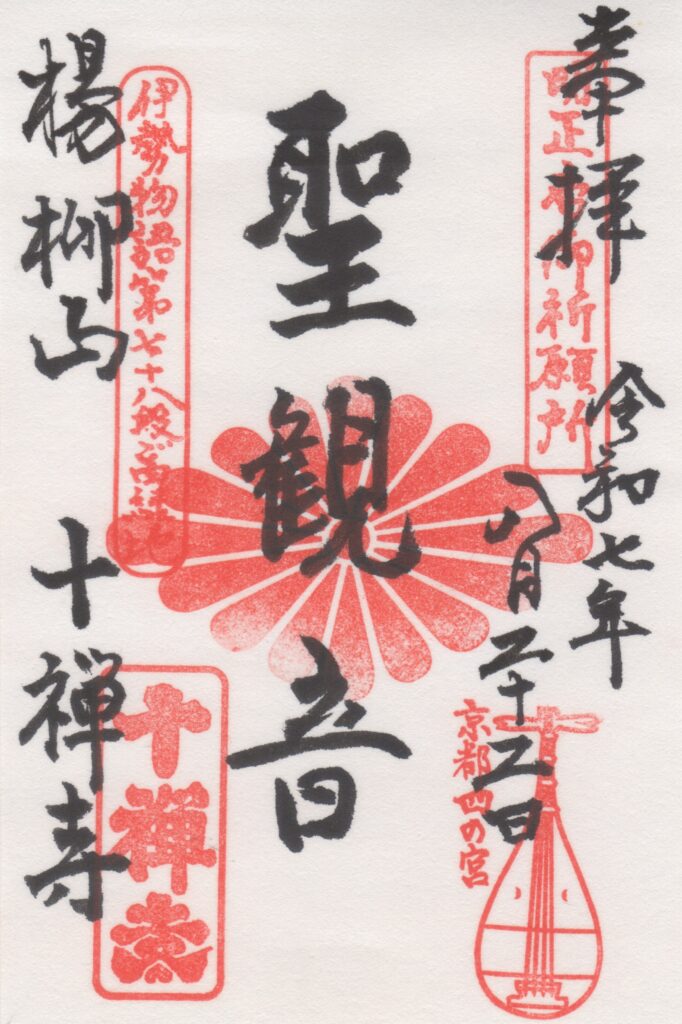 奉拝
明正帝御祈願所
令和七年
八月二十二日
京都四の宮
聖観音
伊勢物語第七十八段ご当地
楊柳山 十禅寺
十禅寺